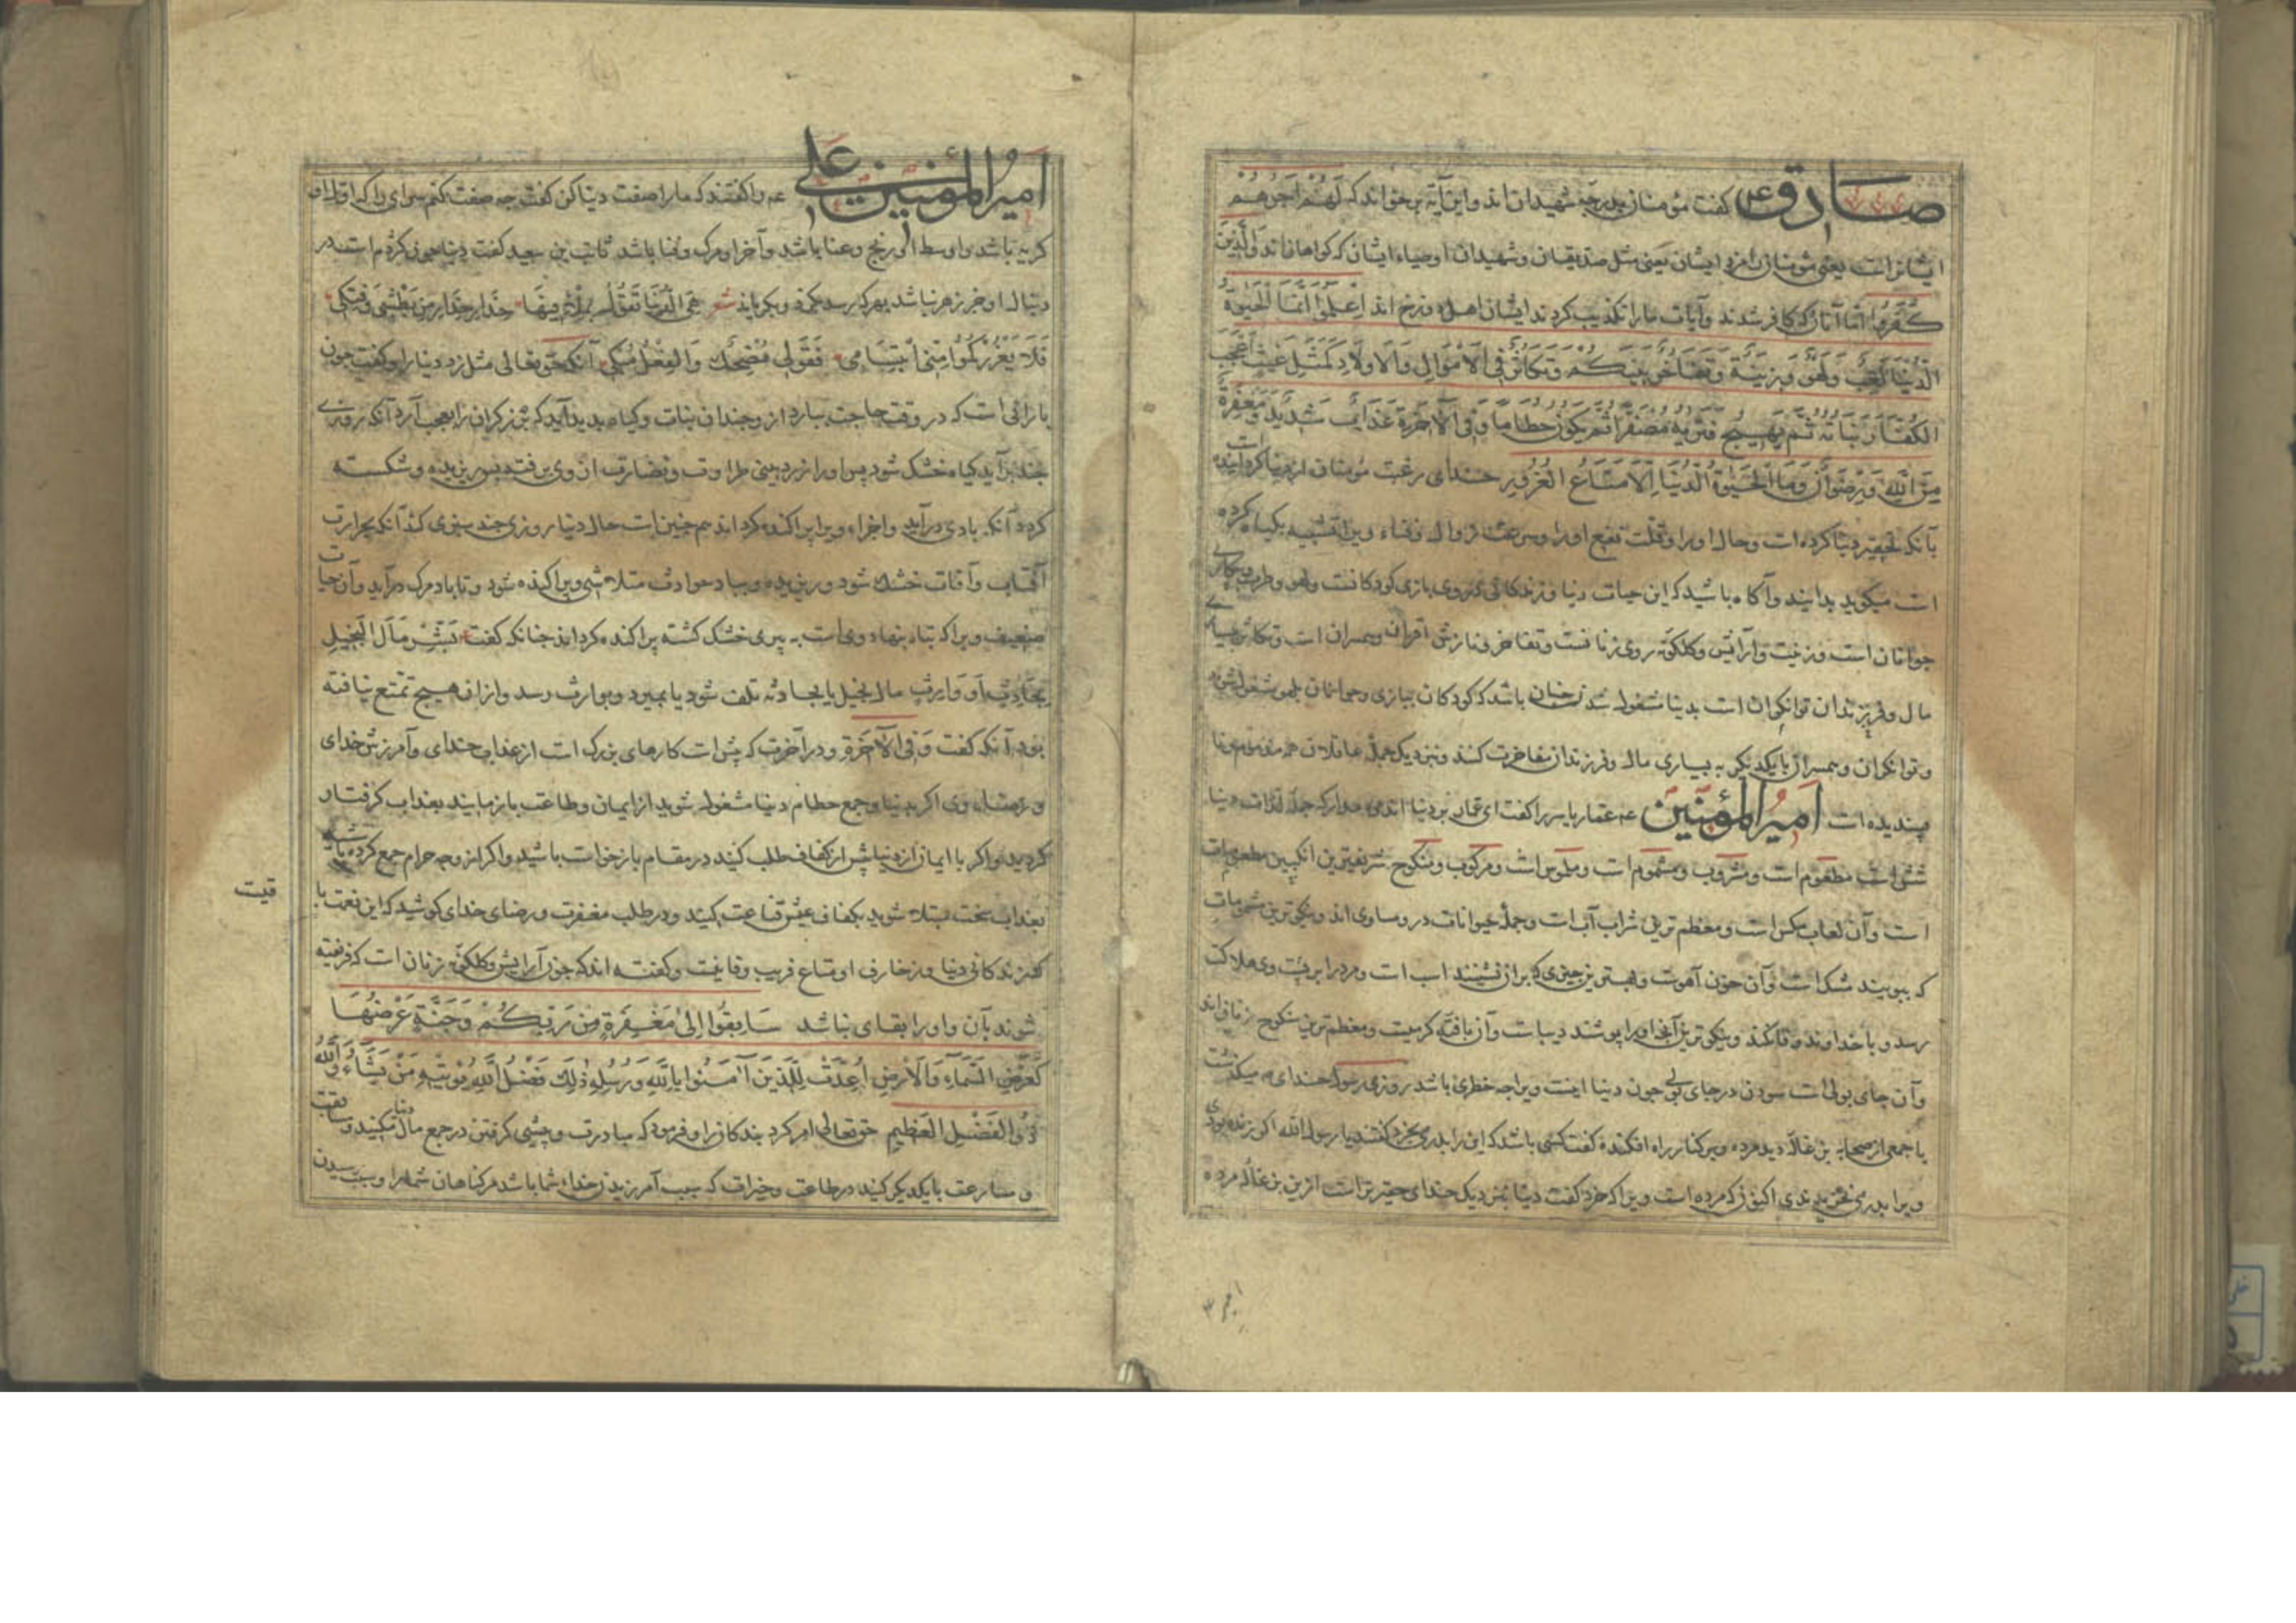 صادق ع گفت مؤمنان بدرجهٔ شهیدان اند واین آیه برخواند که لَهُمْ اَجْرُهُمْ
ایشانراست یعنی مؤمنان را مزد ایشان یعنی مثل صدیقان وشهیدان اوصیاء ایشان که کواهانند وَالَّذِینَ
کَفَرُوا امّا آنان که کافر شدند وآیات مارا تکذیب کردند ایشان اهل دوزخ اند اِعْلَمُوا اَنَّمَا الْحَیٰوةُ
الدُّنْیَا لَعِبٌ وَلَهْوٌ وَزِینَةٌ وَتَفَاخُرٌ بَیْنَکُمْ وَتَکَاثُرٌ فِی الْاَمْوَالِ وَالْاَوْلَادِ کَمَثَلِ غَیْثٍ اَعْجَبَ
الْکُفَّارَ نَبَاتُهُ ثُمَّ یَهِیجُ فَتَرٰیهُ مُصْفَرًّا ثُمَّ یَکُونُ حُطَامًا وَفِی الْاٰخِرَةِ عَذَابٌ شَدِیدٌ وَمَغْفِرَةٌ
مِنَ اللّٰهِ وَرِضْوَانٌ وَمَا الْحَیٰوةُ الدُّنْیَا اِلَّا مَتَاعُ الْغُرُورِ خدای رغبت مؤمنان از دنیا کردانیده است
بآنکه تحقیر دنیا کرده است وحال اورا وقلّت نفع اورا وسرعت زوال وفناء ویرا تشبیه بکیاه کرده
است میکوید بدانید وآکاه باشید که این حیات دنیا وزندکانی بازی کودکانست ولهو وطرب
جوانان است وزینت وآرایش وکلکونه روی زنانست وتفاخر ونازش اقران وهمسران است وتکاثر بسیاری
مال وفرزندان توانکران است بدنیا مشغول شدن چنان باشد که کودکان ببازی وجوانان بلهو مشغول شوند
وتوانکران وهمسران بایکدیکر به بسیاری مال وفرزندان مفاخرت کنند ونزدیک جملهٔ عاقلان همه مذموم ونا
پسندیده است امیرالمؤمنین ع عمّار یاسر را کفت ای عمّار بر دنیا اندوه مدار که جملهٔ لذّات دنیا
شش است مطعوم است ومشروب ومشموم است وملبوس است ومرکوب ومنکوح شریفترین انکبین مطعومات
است وآن لعاب مکس است ومعظم ترین شراب آب است وجملهٔ حیوانات درو مساوی اند ونیکوترین مشمومات
که ببویند مشک است وآن خون آهوست وبهترین چیزی که بر آن نشینند اسب است ومرد را بر پشت وی هلاکت
رسد ونیکوترین آنچه اورا پوشند دیباست وآن بافتهٔ کرمیست ومعظم ترین منکوح زنانند
وآن جای بولی است سودن در جای بولی چون دنیا اینست ویرا چه خطری باشد روزی رسول خدای ص میکذشت
با جمعی از صحابه بزغالهٔ دید مرده وبر کنار راه افکنده کفت کسی باشد که این را بدرمی بخرد کفتند یا رسول الله اکر زنده بودی
ویرا بدرمی نخریدندی اکنون که مرده است ویرا که خرد کفت دنیا نزدیک خدای حقیرتر است ازین بزغالهٔ مرده
امیرالمؤمنین علی ع را کفتند که مارا صفت دنیا کن کفت چه صفت کنم سرای را که اوّل او
کریه باشد واوسط او رنج وعنا باشد وآخر او مرک وفنا باشد ثابت بن سعید کفت دنیا چون کژدم است در
دنبال او جز زهر نباشد بهر که رسد هِیَ الدُّنْیَا تَقُولُ بِمِلْءِ فِیهَا حَذَارِ حَذَارِ مِنْ بَطْشِی وَفَتْکِی
فَلَا یَغْرُرْکُمُوا مِنِّی ابْتِسَامِی فَقَوْلِی مُضْحِکٌ وَالْفِعْلُ مُبْکِی آنکه حق تعالی مثل زد دنیا را وکفت چون
بارانی است که در وقت حاجت ببارد از وچندان نبات وکیاه پدید آید که برزکران را بعجب آرد آنکه روزی
چند برآید کیاه خشک شود پس اورا زرد بینی طراوت ونضارت از وی برفته پس ریزیده وشکسته
کردد آنکه بادی درآید واجزاء ویرا پراکنده کرداند همچنین است حال دنیا روزی چند سبزی کند آنکه بحرارت
آفتاب وآفات خشک شود وریزیده وبباد حوادث متلاشی وپراکنده شود وتا باد مرک درآید وآن حیات
ضعیف ویرا که تباه به پیری خشک کشته پراکنده کرداند چنانکه کفت بَشِّرْ مَالَ الْبَخِیلِ
بِحَادِثٍ اَوْ وَارِثٍ مال بخیل یا بحادثه تلف شود یا بمیرد وبوارث رسد واز آن هیچ تمتّع نیافته
بود آنکه کفت وَفِی الْاٰخِرَةِ ودر آخرت که پس است کارهای بزرک است از عذاب خدای وآمرزش خدای
ورضاء وی اکر بدنیا وجمع حطام دنیا مشغول شوید از ایمان وطاعت باز مانید بعذاب کرفتار
کردید واکر با ایمان از دنیا بیش از کفاف طلب کنید در مقام بازخواست باشید واکر از وجه حرام جمع کرده باشید
بعذاب سخت مبتلا شوید بکفاف عیش قناعت کنید ودر طلب مغفرت ورضای خدای کوشید که این نعمت با
قیت
که زندکانی دنیا وزخارف او متاع فریب وفانیست وکفته اند که چون آرایش وکلکونه زنان است که فریفته
شوند بآن واورا بقای نباشد سَابِقُوا اِلٰی مَغْفِرَةٍ مِنْ رَبِّکُمْ وَجَنَّةٍ عَرْضُهَا
کَعَرْضِ السَّمَاءِ وَالْاَرْضِ اُعِدَّتْ لِلَّذِینَ آمَنُوا بِاللّٰهِ وَرُسُلِهِ ذٰلِکَ فَضْلُ اللّٰهِ یُؤْتِیهِ مَنْ یَشَاءُ وَاللّٰهُ
ذُو الْفَضْلِ الْعَظِیمِ حق تعالی امر کرد بندکان را وفرمود که مبادرت وپیشی کرفتن در جمع مال دنیا مکنید ومسابقت
ومسارعت بایکدیکر کنید در طاعت وخیرات که سبب آمرزیدن خداء شما باشد مر کناهان شمارا وسبب رسیدن